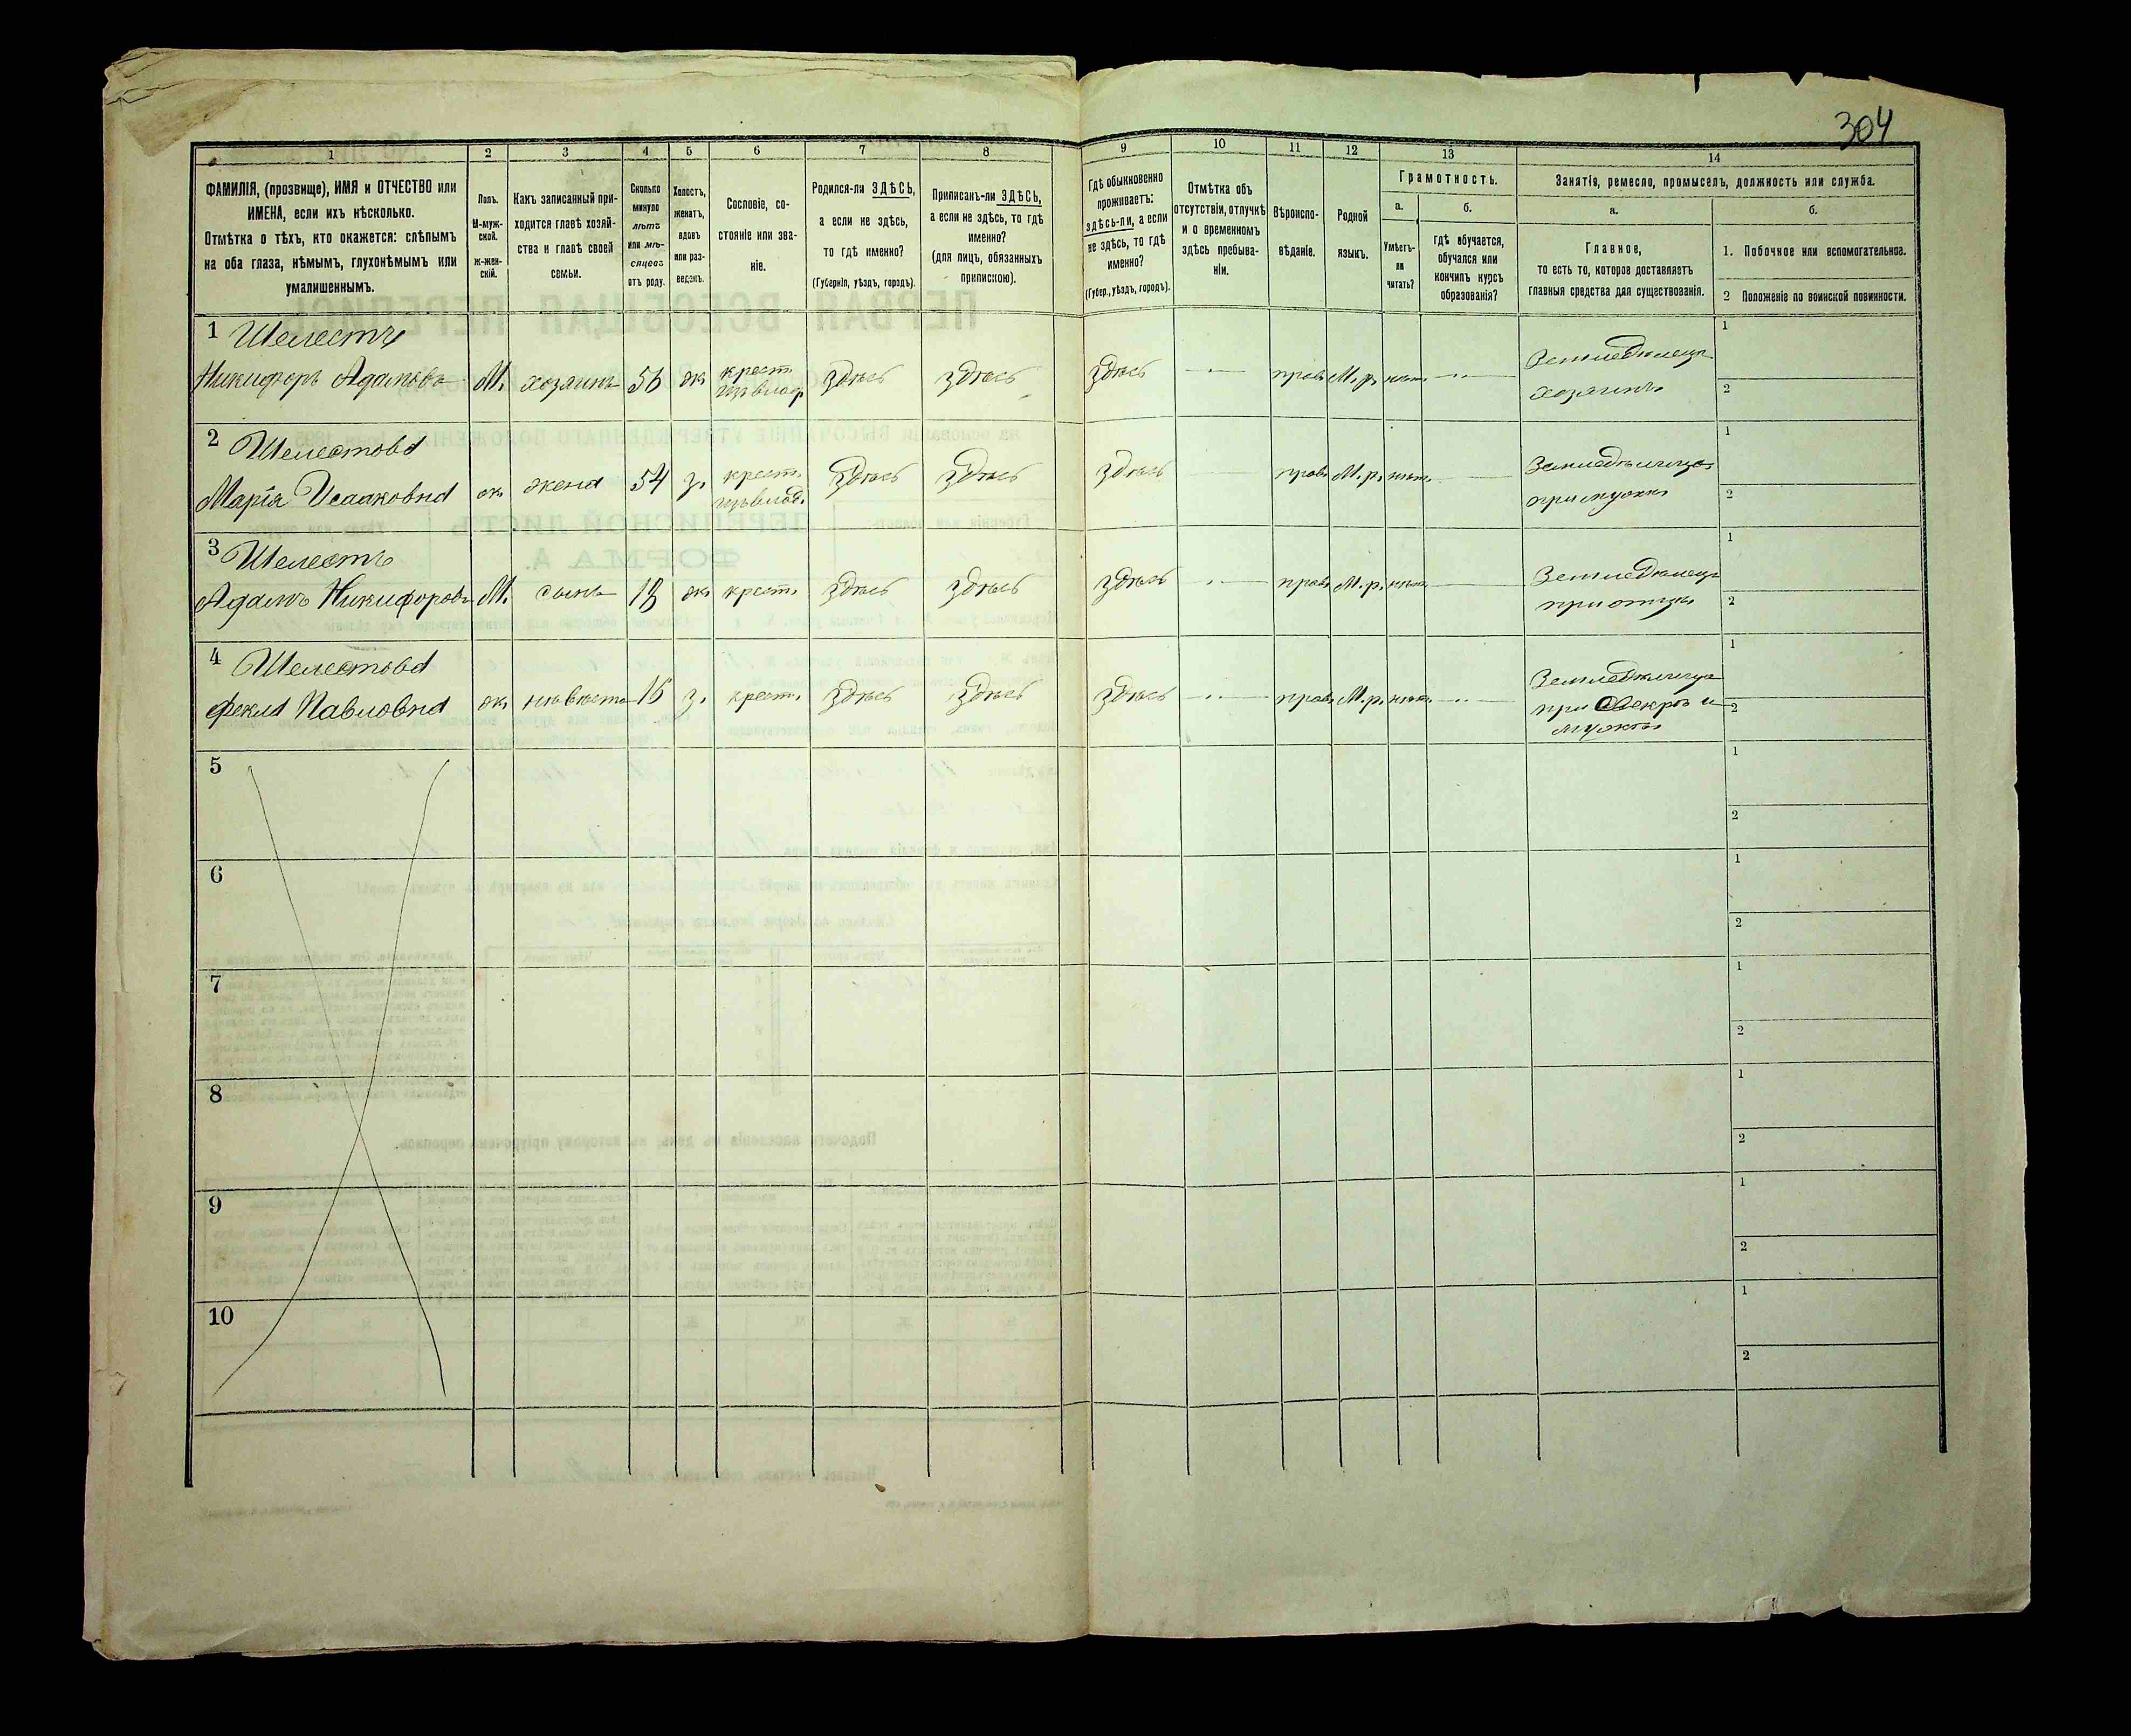 304
1 2 3 4 5 6 7 8 9 10 11 12 13 14
ФАМИЛІЯ, (прозвище), ИМЯ и ОТЧЕСТВО или
ИМЕНА, если ихъ нѣсколько.
Отмѣтка о тѣхъ, кто окажется: слѣпымъ
на оба глаза, нѣмымъ, глухонѣмымъ или
умалишеннымъ.
Полъ.
М-муж-
ской.
Ж-жен-
скій.
Какъ записанный при-
ходится главѣ хозяй-
ства и главѣ своей
семьи.
Сколько
минуло
лѣтъ
или мѣ-
сяцевъ
отъ роду.
Холостъ,
женатъ,
вдовъ
или раз-
веденъ.
Сословіе, со-
стояніе или зва-
ніе.
Родился-ли ЗДѢСЬ,
а если не здѣсь,
то гдѣ именно?
(Губернія, уѣздъ, городъ).
Приписанъ-ли ЗДѢСЬ,
а если не здѣсь, то гдѣ
именно?
(для лицъ, обязанныхъ
припискою).
Гдѣ обыкновенно
проживаетъ:
здѣсь-ли, а если
не здѣсь, то гдѣ
именно?
(Губер., уѣздъ, городъ).
Отмѣтка объ
отсутствіи, отлучкѣ
и о временномъ
здѣсь пребыва-
ніи.
Вѣроиспо-
вѣданіе.
Родной
языкъ.
Грамотность.
а.
Умѣетъ-
ли
читать?
б.
гдѣ обучается,
обучался или
кончилъ курсъ
образованія?
Занятія, ремесло, промыселъ, должность или служба.
а.
Главное,
то есть то, которое доставляетъ
главныя средства для существованія.
б.
1. Побочное или вспомогательное.
2 Положеніе по воинской повинности.
1 Шелестъ
Никифоръ Адамовъ М. хозяинъ 56 ж. крест. изъ влад. здѣсь здѣсь здѣсь — прав. М.р. нѣт. — Земледѣлецъ
хозяинъ
1
2
2 Шелестова
Марія Исааковна ж. жена 54 з. крест. изъ влад. здѣсь здѣсь здѣсь — прав. М.р. нѣт. Земледѣлица
при мужѣ
1
2
3 Шелестъ
Адамъ Никифоровъ М. сынъ 18 ж. крест. здѣсь здѣсь здѣсь — прав. М.р. нѣт. — Земледѣлецъ
при отцѣ
1
2
4 Шелестова
Фекла Павловна ж. невѣста 16 з. крест. здѣсь здѣсь здѣсь — прав. М.р. нѣт. — Земледѣлица
при свекрѣ и
мужѣ
1
2
5
1
2
6
1
2
7
1
2
8
1
2
9
1
2
10
1
2